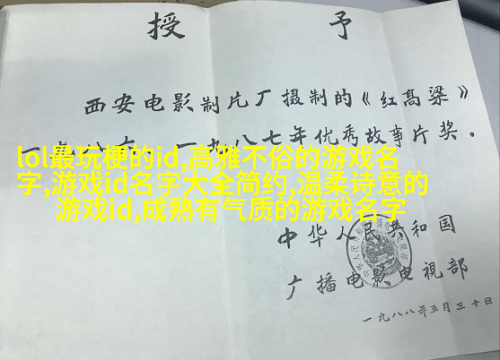 授予
西安电影制片厂摄制的《红高粱》
一九八六、一九八七年优秀故事片奖。
lol最玩梗的id,高雅不俗的游戏名
字,游戏id名字大全简约,温柔诗意的
游戏id,成熟有气质的游戏名字
中华人民共和国
广播电影电视部
一九八八年三月三十日